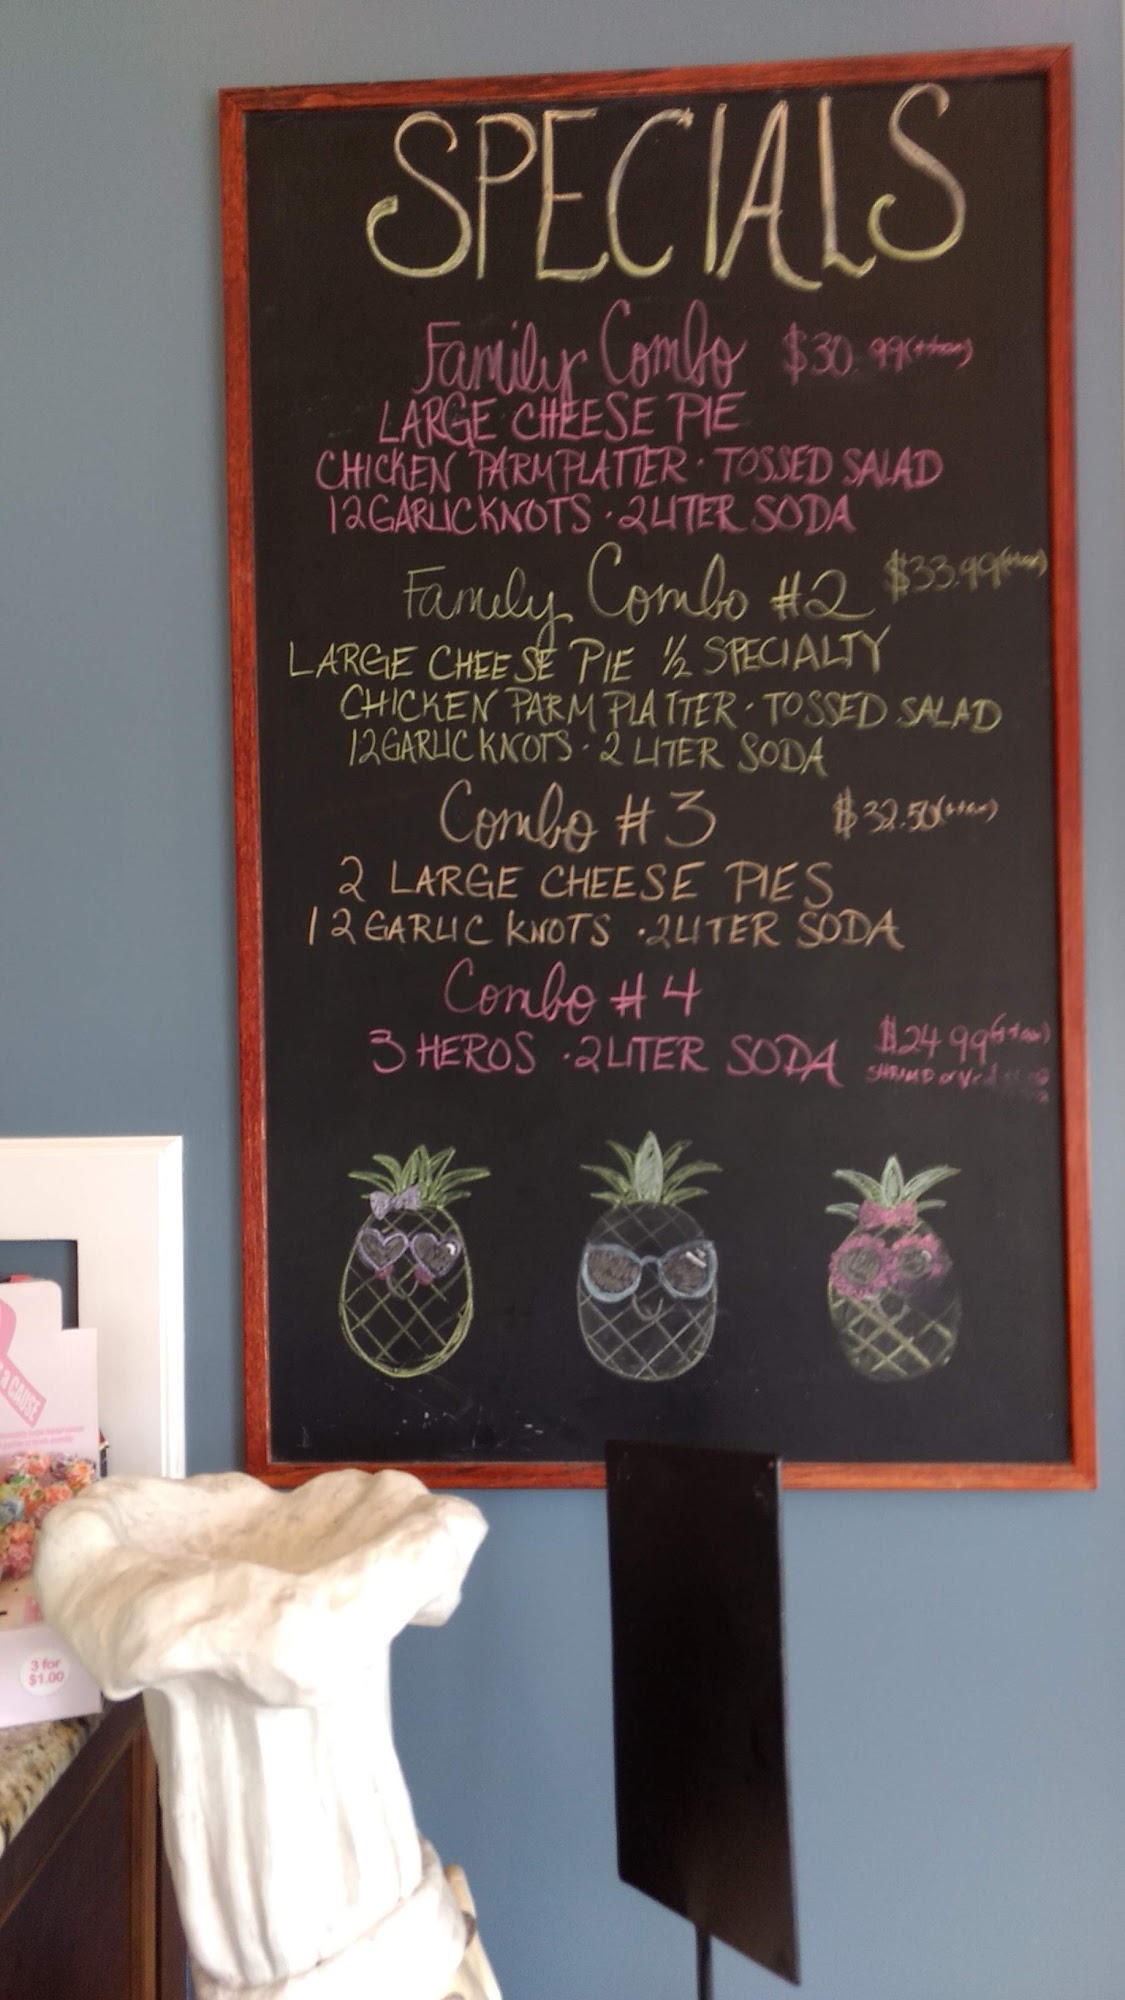 SPECIALS
Family Combo $30.99(+tax)
LARGE CHEESE PIE
CHICKEN PARM PLATTER · TOSSED SALAD
12 GARLIC KNOTS · 2 LITER SODA
Family Combo #2 $33.99(+tax)
LARGE CHEESE PIE 1/2 SPECIALTY
CHICKEN PARM PLATTER · TOSSED SALAD
12 GARLIC KNOTS · 2 LITER SODA
Combo #3 $32.50(+tax)
2 LARGE CHEESE PIES
12 GARLIC KNOTS · 2 LITER SODA
Combo #4
3 HEROS · 2 LITER SODA $24.99(+tax)
SHRIMP or
a CAUSE
3 for
$1.00